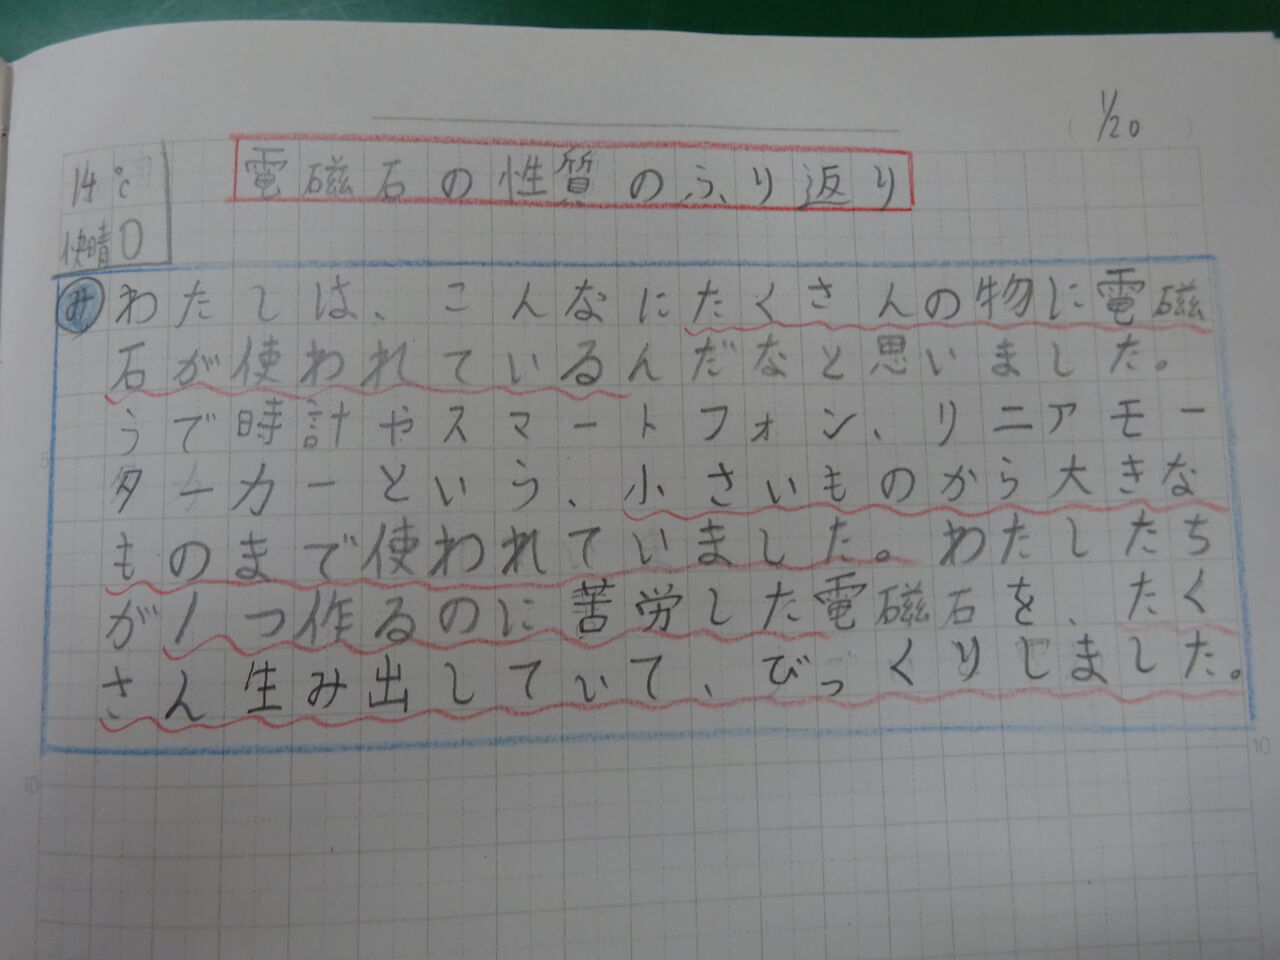 1/20
電磁石の性質のふり返り
14℃
快晴
み わたしは、こんなにたくさんの物に電磁
石が使われているんだなと思いました。
うで時計やスマートフォン、リニアモー
ターカーという、小さいものから大きな
ものまで使われていました。わたしたち
が1つ作るのに苦労した電磁石を、たく
さん生み出していて、びっくりしました。
5
5
10
10